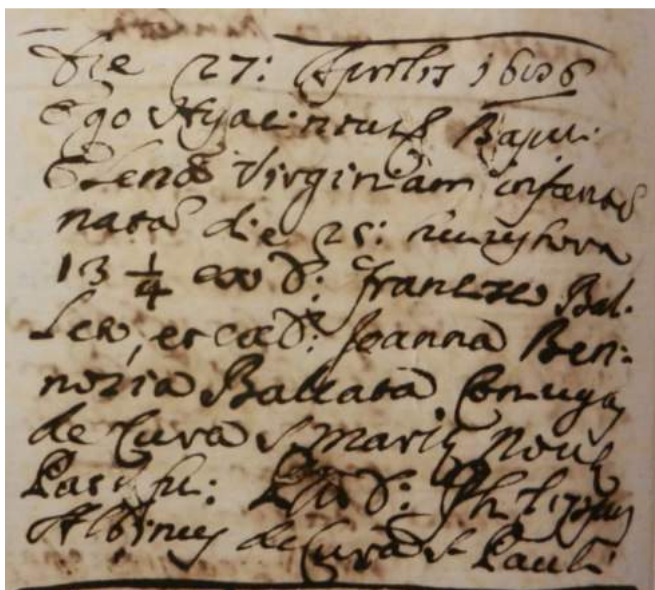 Die 27: Aprilis 1606
Ego Hyacinthus Bapti:
Elenã Virginiam infantẽ
natã die 25: huius hora
13 1/4 ex D: Francisco Bal-
leo, et ex D: Joanna Ben:
Ballata Coniugibus
de Cura S. Mariæ Nouæ
Pat: fu: D: Philippus
Albinus de Cura S. Pauli